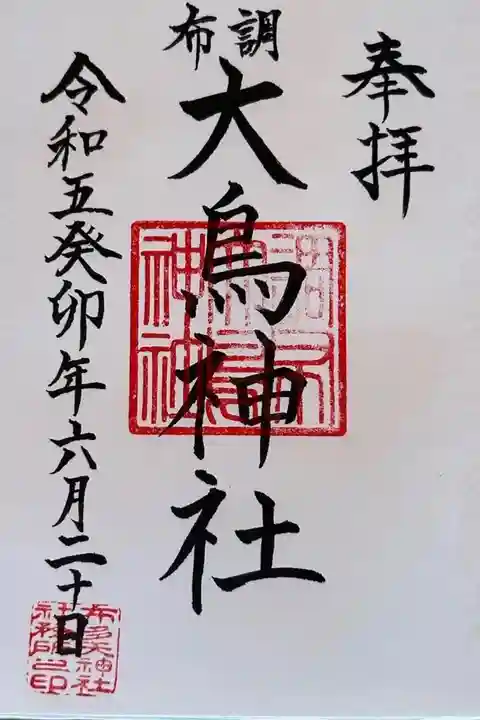 奉拝
調布
大鳥神社
令和五癸卯年六月二十日
布多天神社社務所之印